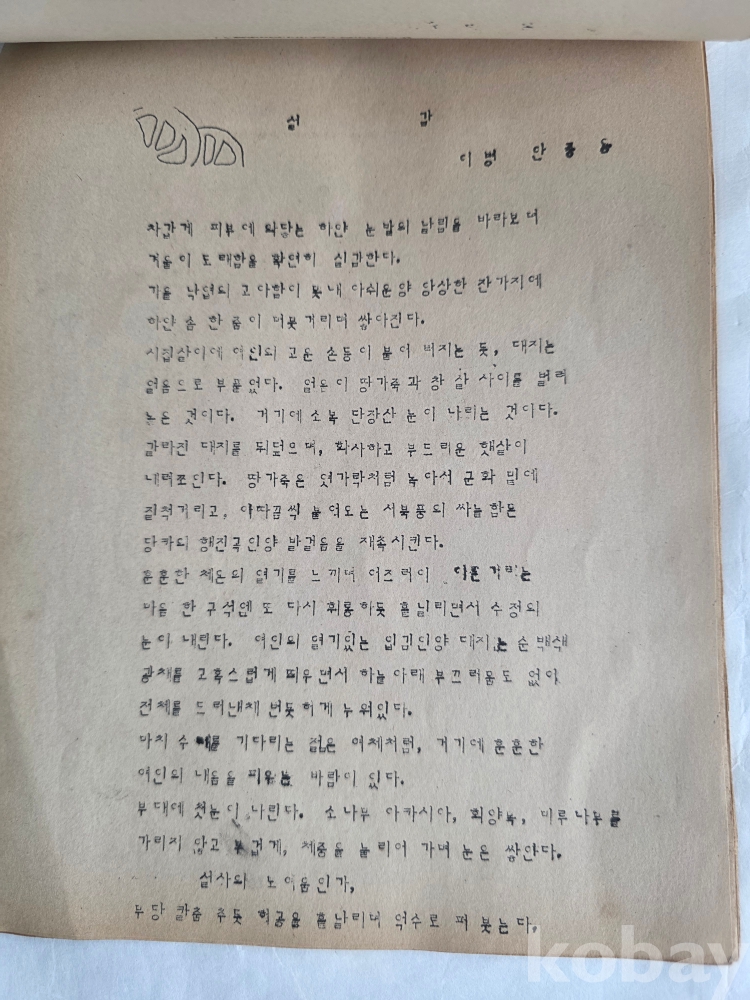 설 감
이병 안종동
차갑게 피부에 와닿는 하얀 눈발의 날림을 바라보며
겨울이 도래함을 확연히 실감한다.
가을 낙엽의 고아함이 못내 아쉬운양 앙상한 잔가지에
하얀 솜 한 줌이 머뭇거리며 쌓아진다.
시집살이에 여인의 고운 손등이 불어 버지는 듯, 대지는
얼음으로 부풀었다. 얼은이 땅가죽과 창 살 사이를 벌려
놓은 것이다. 거기에 소복 단장산 눈이 나리는 것이다.
갈라진 대지를 뒤덮으며, 화사하고 부드러운 햇살이
내려쪼인다. 땅가죽은 엿가락처럼 녹아서 군화 밑에
질척거리고, 이따끔씩 불어오는 서북풍의 싸늘함은
당카의 행진곡인양 발걸음을 재촉시킨다.
훈훈한 체온의 열기를 느끼며 어즈러이 거리는
마음 한 구석엔 또 다시 휘롱하듯 흩날리면서 수정의
눈이 내린다. 여인의 열기있는 입김인양 대지는 순백색
광채를 고혹스럽게 띄우면서 하늘아래 부끄러움도 없이
전체를 드러낸채 번듯하게 누워있다.
마치 수 를 기다리는 젊은 여체처럼, 거기에 훈훈한
여인의 내음을 피우는 바람이 있다.
부대에 첫눈이 나린다. 소나무 아카시아, 회양목, 미루나무를
가리지 않고 무겁게, 체중을 눌리어 가며 눈은 쌓인다.
설사의 노여움인가,
무당 칼춤 추듯 허공을 흩날리며 억수로 퍼 붓는다.
kobay